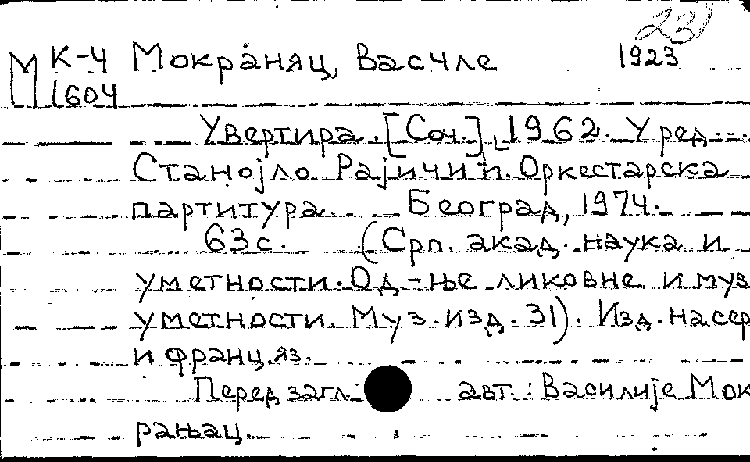 23
М К-4 Мокрањац, Василе 1923
1604
Увертира. [Соч.] 1962. Уред.
Станојло Рајичић. Оркестарска
партитура. Београд, 1974.
63 с. (Срп. акад. наука и
уметности. Од-ње ликовне и муз
уметности. Муз. изд. 31). Изд. на сер
и франц. яз.
Перед загл. авт.: Василије Мок
рањац.